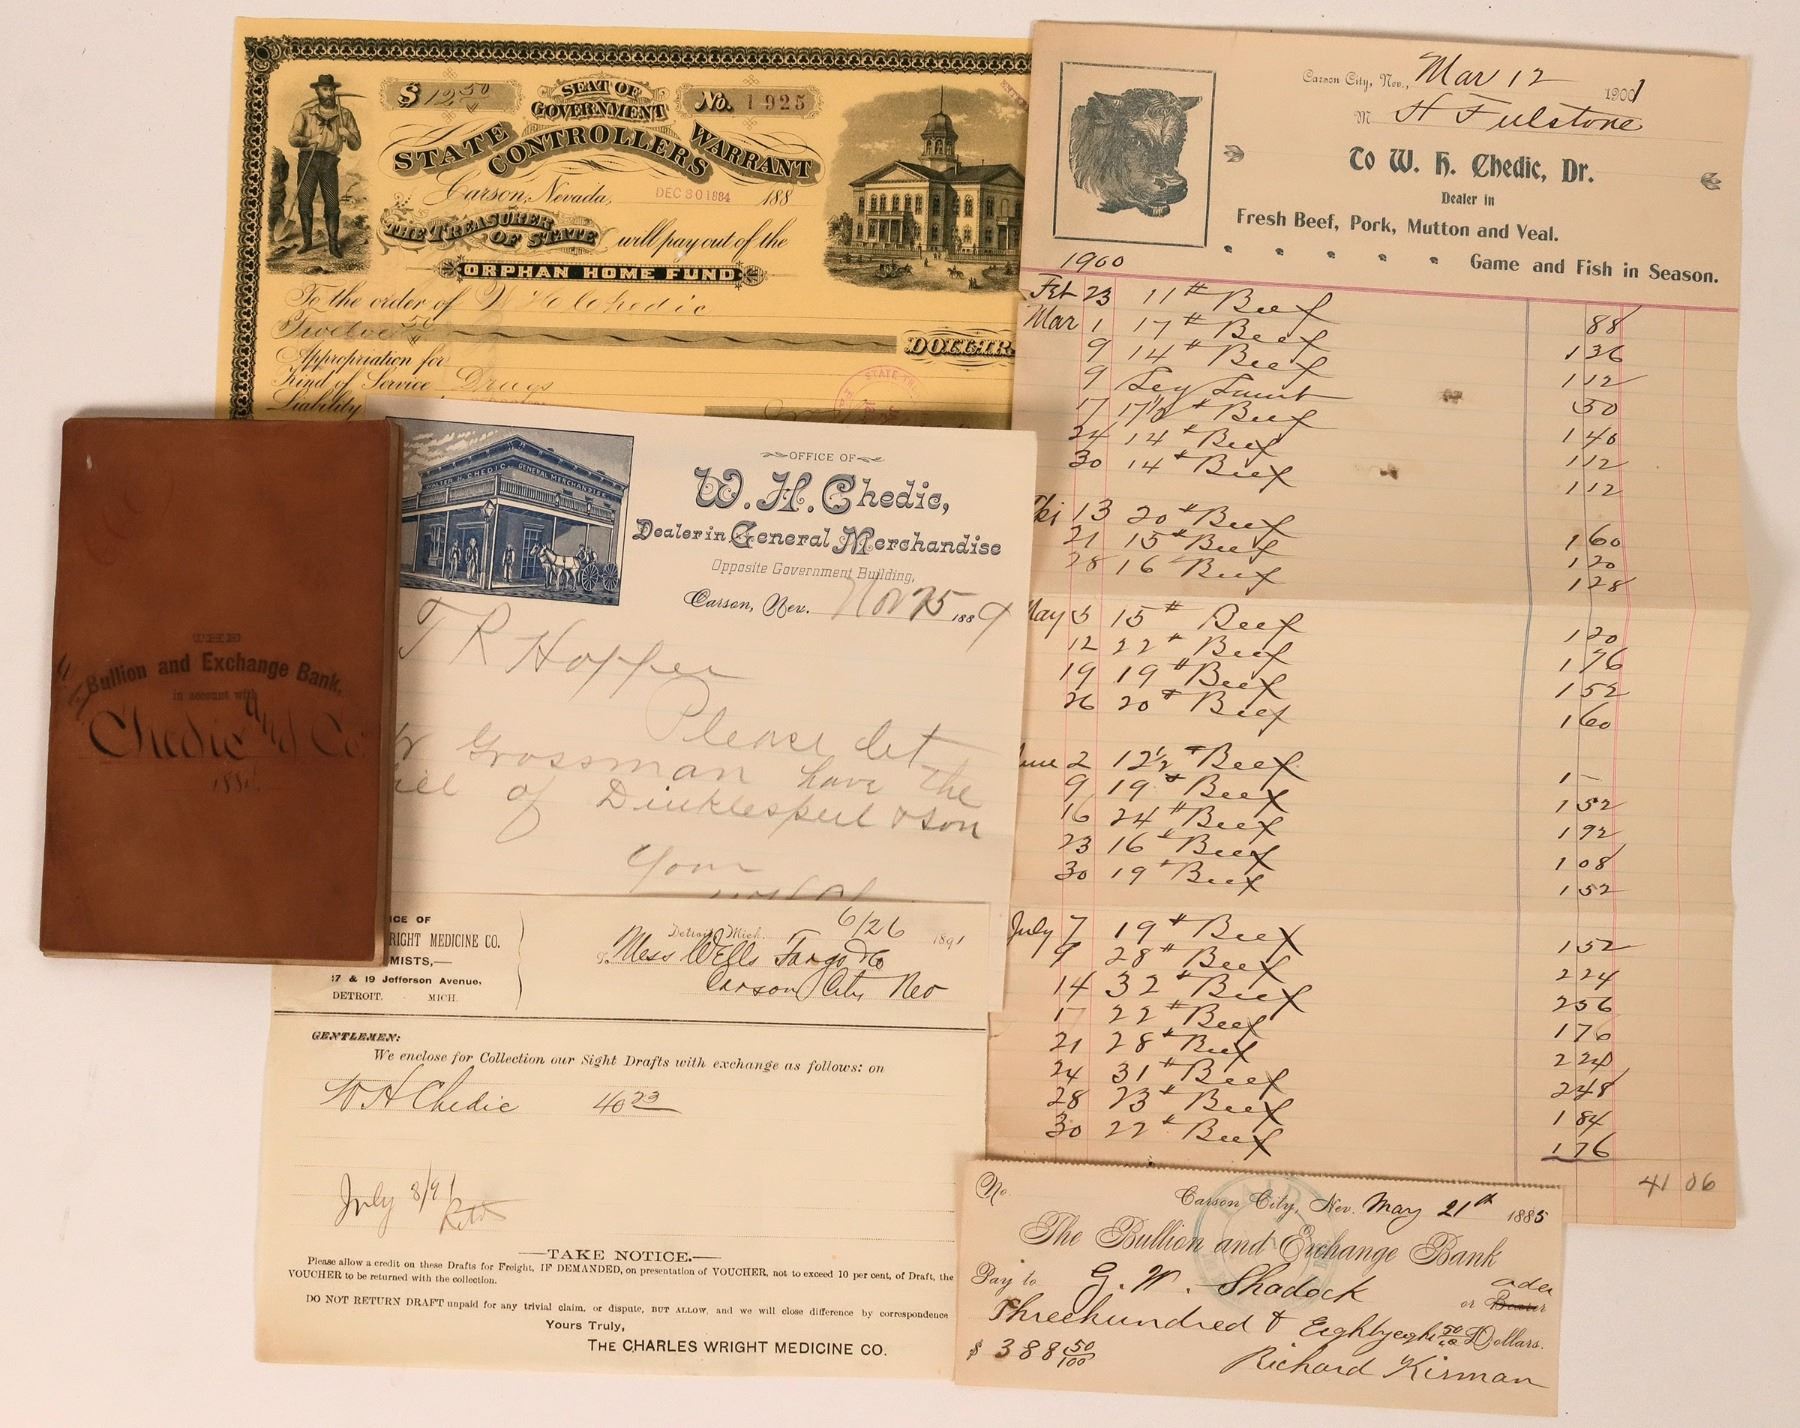 $ 12.50
SEAT OF
GOVERNMENT
No. 1925
STATE CONTROLLERS WARRANT
Carson, Nevada, DEC 30 1884 188
THE TREASURER
OF STATE will pay out of the
ORPHAN HOME FUND
To the order of W H Chedic
Twelve 50 DOLLAR
Appropriation for
Kind of Service Drugs
Liability
STATE
Carson City, Nev., Mar 12 1901
M H Fulstone
To W. H. Chedic, Dr.
Dealer in
Fresh Beef, Pork, Mutton and Veal.
Game and Fish in Season.
1900
Feb 23 11 # Beef 88
Mar 1 17 # Beef 136
9 14 # Beef 112
9 Leg Lamb 50
17 17 1/2 # Beef 140
24 14 # Beef 112
30 14 # Beef 112
13 20 # Beef 160
21 15 # Beef 120
28 16 # Beef 128
May 5 15 # Beef 120
12 22 # Beef 176
19 19 # Beef 152
26 20 # Beef 160
June 2 12 1/2 # Beef 1 -
9 19 # Beef 152
16 24 # Beef 192
23 16 # Beef 108
30 19 # Beef 152
July 7 19 # Beef 152
9 28 # Beef 224
14 32 # Beef 256
17 22 # Beef 176
21 28 # Beef 224
24 31 # Beef 248
28 23 # Beef 184
30 22 # Beef 176
41 06
THE
Bullion and Exchange Bank,
in account with
Chedic and Co
188
WALTER H. CHEDIC GENERAL MERCHANDISE
OFFICE OF
W. H. Chedic,
Dealer in General Merchandise
Opposite Government Building,
Carson, Nev. Nov 25 1889
T R Hopper
Please let
Mr Grossman have the
of Dinklespeil & son
Yours
ICE OF
RIGHT MEDICINE CO.
MISTS,
17 & 19 Jefferson Avenue,
DETROIT. MICH.
Detroit, Mich. 6/26 1891
Mess Wells Fargo & Co
Carson City Nev
GENTLEMEN:
We enclose for Collection our Sight Drafts with exchange as follows: on
W H Chedic 40 23
July 8/91
TAKE NOTICE.
Please allow a credit on these Drafts for Freight, IF DEMANDED, on presentation of VOUCHER, not to exceed 10 per cent, of Draft, the
VOUCHER to be returned with the collection.
DO NOT RETURN DRAFT unpaid for any trivial claim, or dispute, BUT ALLOW, and we will close difference by correspondence
Yours Truly,
THE CHARLES WRIGHT MEDICINE CO.
No.
Carson City, Nev. May 21th 1885
The Bullion and Exchange Bank
Pay to G. W. Shadock or Bearer oder
Threehundred & Eightyeght 50/00 Dollars.
$ 388 50/100
Richard Kirman